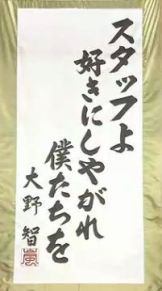 スタッフよ
好きにしやがれ
僕たちを
大野智
嵐